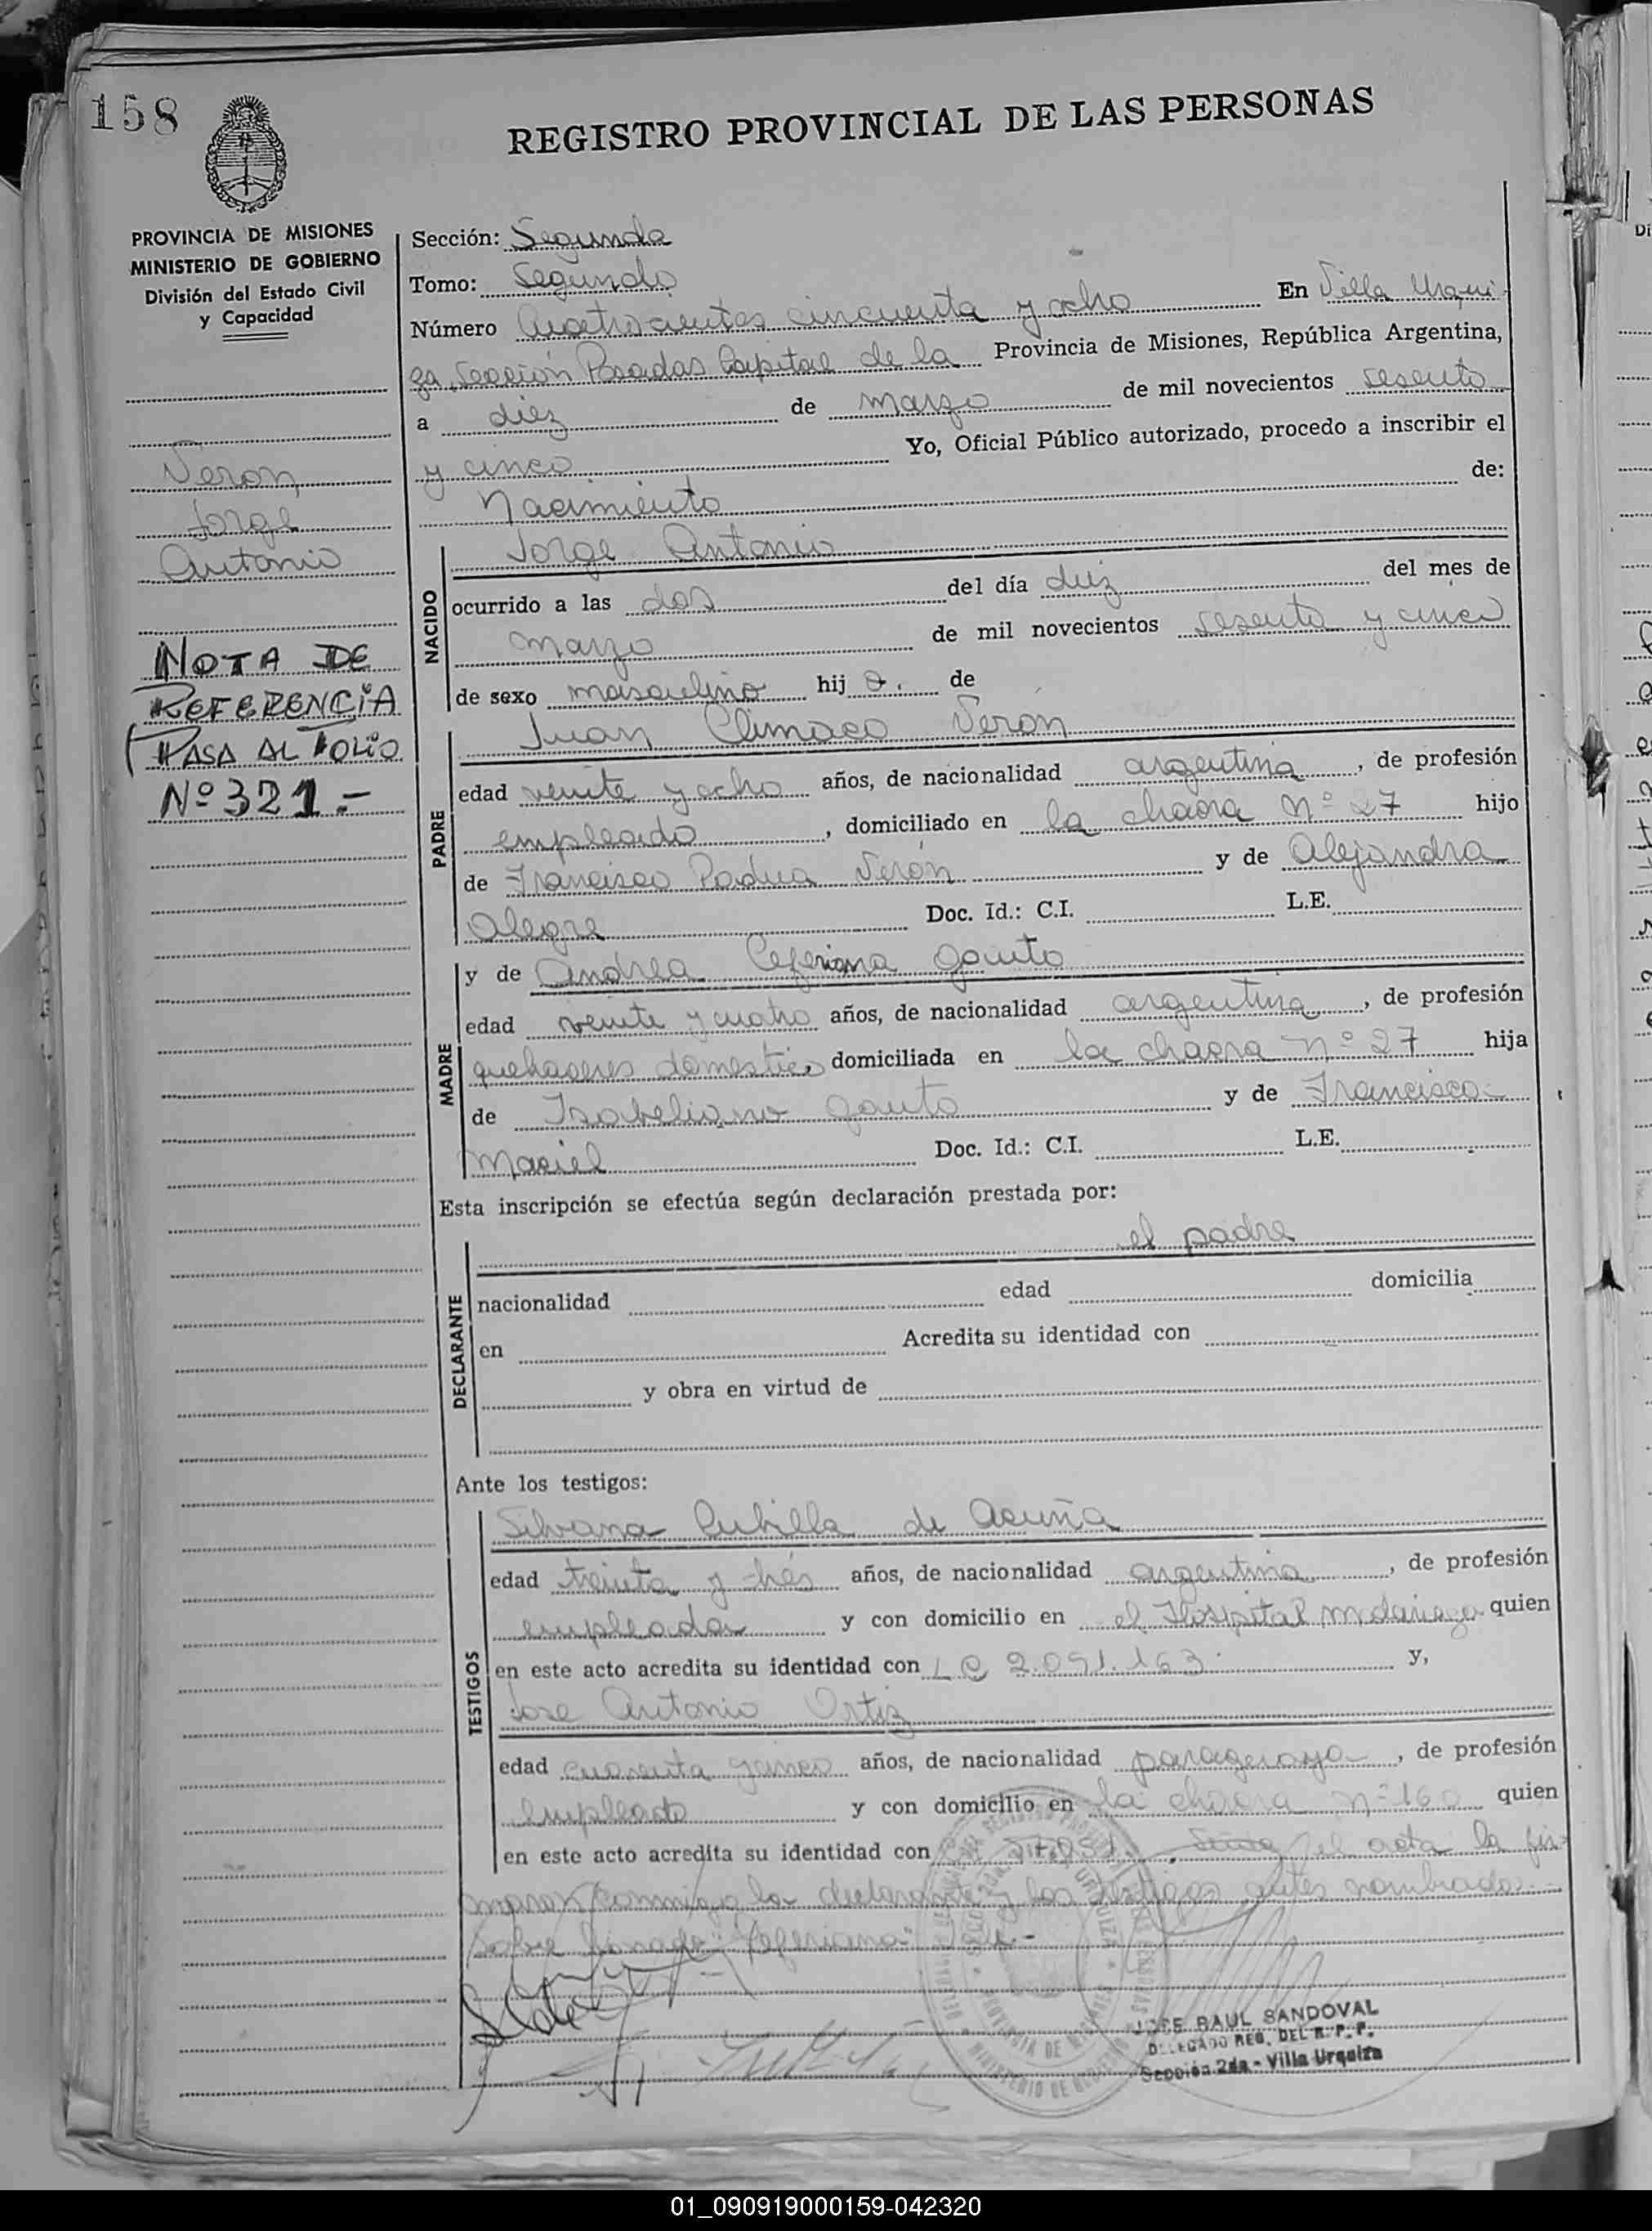 158
REGISTRO PROVINCIAL DE LAS PERSONAS
PROVINCIA DE MISIONES
MINISTERIO DE GOBIERNO
División del Estado Civil
y Capacidad
Veron,
Jorge
Antonio
NOTA DE
REFERENCIA
PASA AL FOLIO
Nº 321.-
Sección: Segunda
Tomo: Segundo
Número Cuatrocientos cincuenta y ocho En Villa Urqui-
za, Sección Posadas Capital de la Provincia de Misiones, República Argentina,
a diez de marzo de mil novecientos sesenta
y cinco Yo, Oficial Público autorizado, procedo a inscribir el
Nacimiento de:
NACIDO
Jorge Antonio
ocurrido a las dos del día diez del mes de
marzo de mil novecientos sesenta y cinco
de sexo masculino hijo. de
PADRE
Juan Climaco Verón
edad veinte y ocho años, de nacionalidad argentina, de profesión
empleado, domiciliado en la chacra Nº 27 hijo
de Francisco Padua Verón y de Alejandra
Alegre Doc. Id.: C.I. L.E.
MADRE
y de Andrea Ceferiana Gauto
edad veinte y cuatro años, de nacionalidad argentina, de profesión
quehaceres domestico domiciliada en la chacra nº 27 hija
de Isabeliano Gauto y de Francisca
Maciel Doc. Id.: C.I. L.E.
Esta inscripción se efectúa según declaración prestada por:
DECLARANTE
el padre
nacionalidad edad domicilia
en Acredita su identidad con
y obra en virtud de
Ante los testigos:
TESTIGOS
Silvana Cubilla de Acuña
edad treinta y trés años, de nacionalidad argentina, de profesión
empleada y con domicilio en el Hospital Madariaga quien
en este acto acredita su identidad con L C 2.091.163 y,
Jose Antonio Ortiz
edad cuarenta y cinco años, de nacionalidad paraguaya, de profesión
empleado y con domicilio en la chacra nº 160 quien
en este acto acredita su identidad con el acta la fir-
maron conmigo los testigos antes nombrados.-
Sobre borrado: "Ceferiana"
JOSE RAUL SANDOVAL
DELEGADO REG. DEL R. P. P.
Sección 2da - Villa Urquiza
01_090919000159-042320